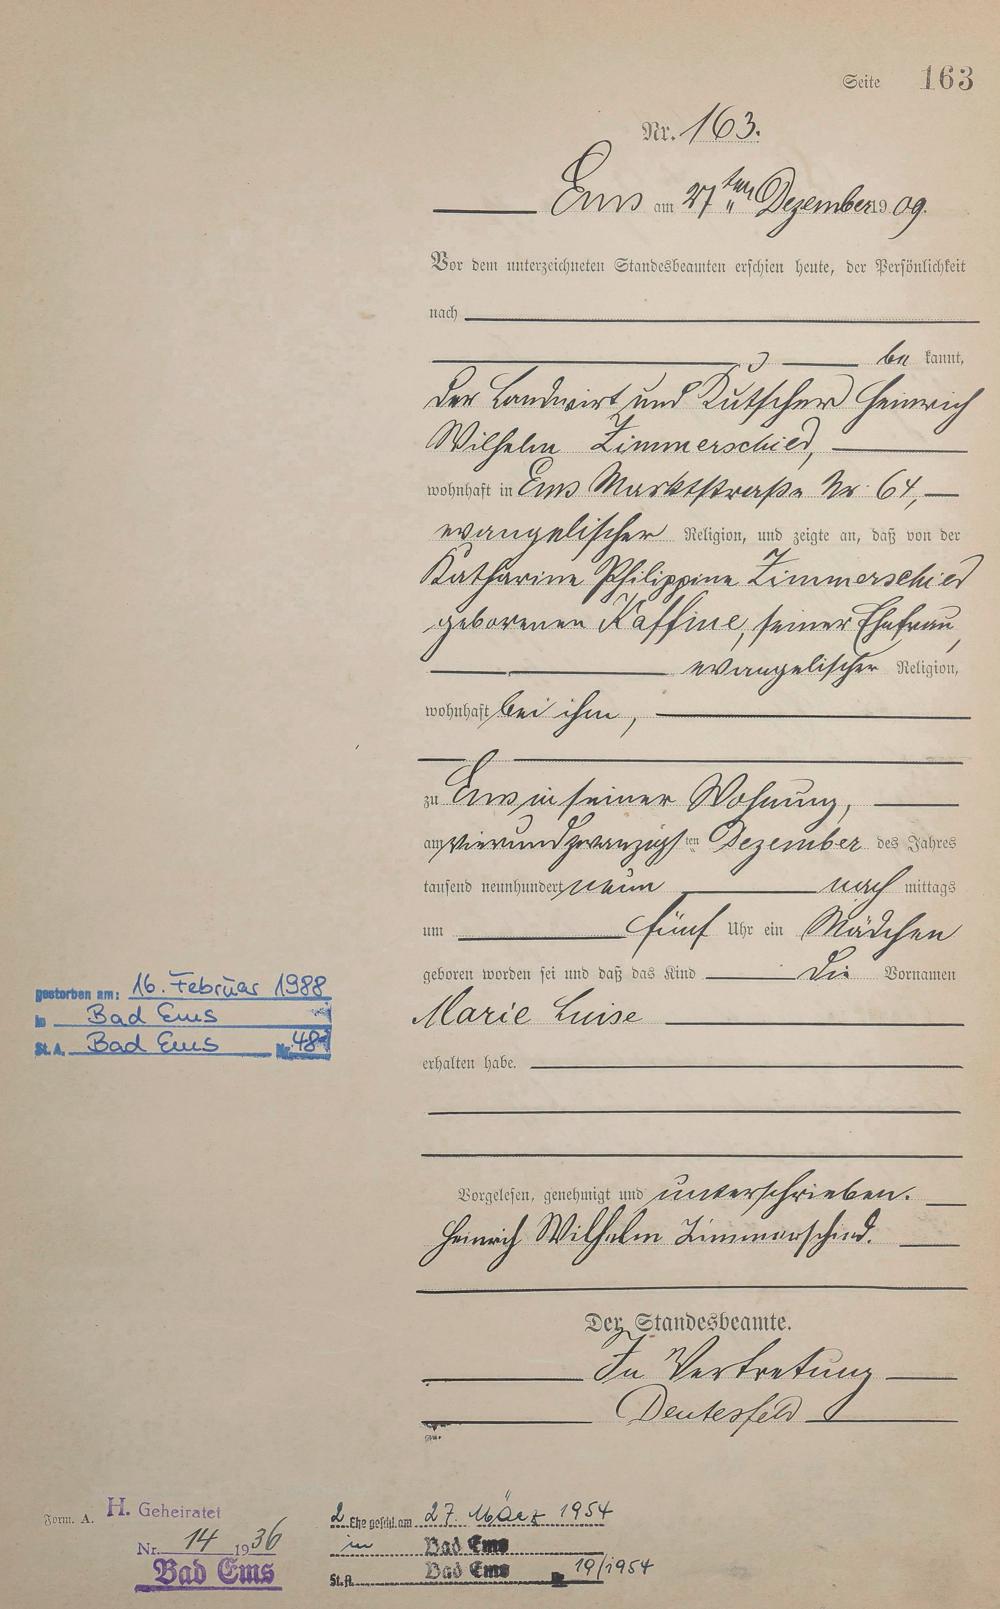 Seite 163
Nr. 163.
Ems am 27ten Dezember 1909.
Vor dem unterzeichneten Standesbeamten erschien heute, der Persönlichkeit
nach
be kannt,
der Landwirt und Kutscher Heinrich
Wilhelm Zimmerschied,
wohnhaft in Ems Marktstraße Nr. 64,
evangelischer Religion, und zeigte an, daß von der
Katharine Philippine Zimmerschied
geborenen Kaffine, seiner Ehefrau,
evangelischer Religion,
wohnhaft bei ihm,
zu Ems in seiner Wohnung,
am vierundzwanzigsten Dezember des Jahres
tausend neunhundert neun nach mittags
um fünf Uhr ein Mädchen
geboren worden sei und daß das Kind die Vornamen
Marie Luise
erhalten habe.
Vorgelesen, genehmigt und unterschrieben.
Heinrich Wilhelm Zimmerschied.
Der Standesbeamte.
In Vertretung
Deutesfeld
gestorben am: 16. Februar 1988
in Bad Ems
St.A. Bad Ems Nr. 48
Form. A.
H. Geheiratet
Nr. 14 1936
Bad Ems
2. Ehe geschl. am 27. März 1954
in Bad Ems
St.A. Bad Ems Nr. 19/1954